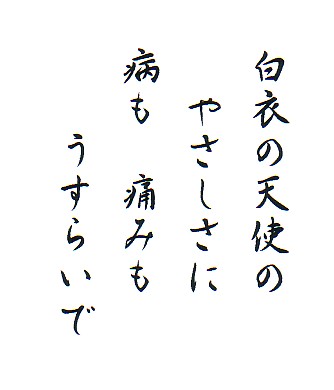 白衣の天使の
やさしさに
病も　痛みも
うすらいで